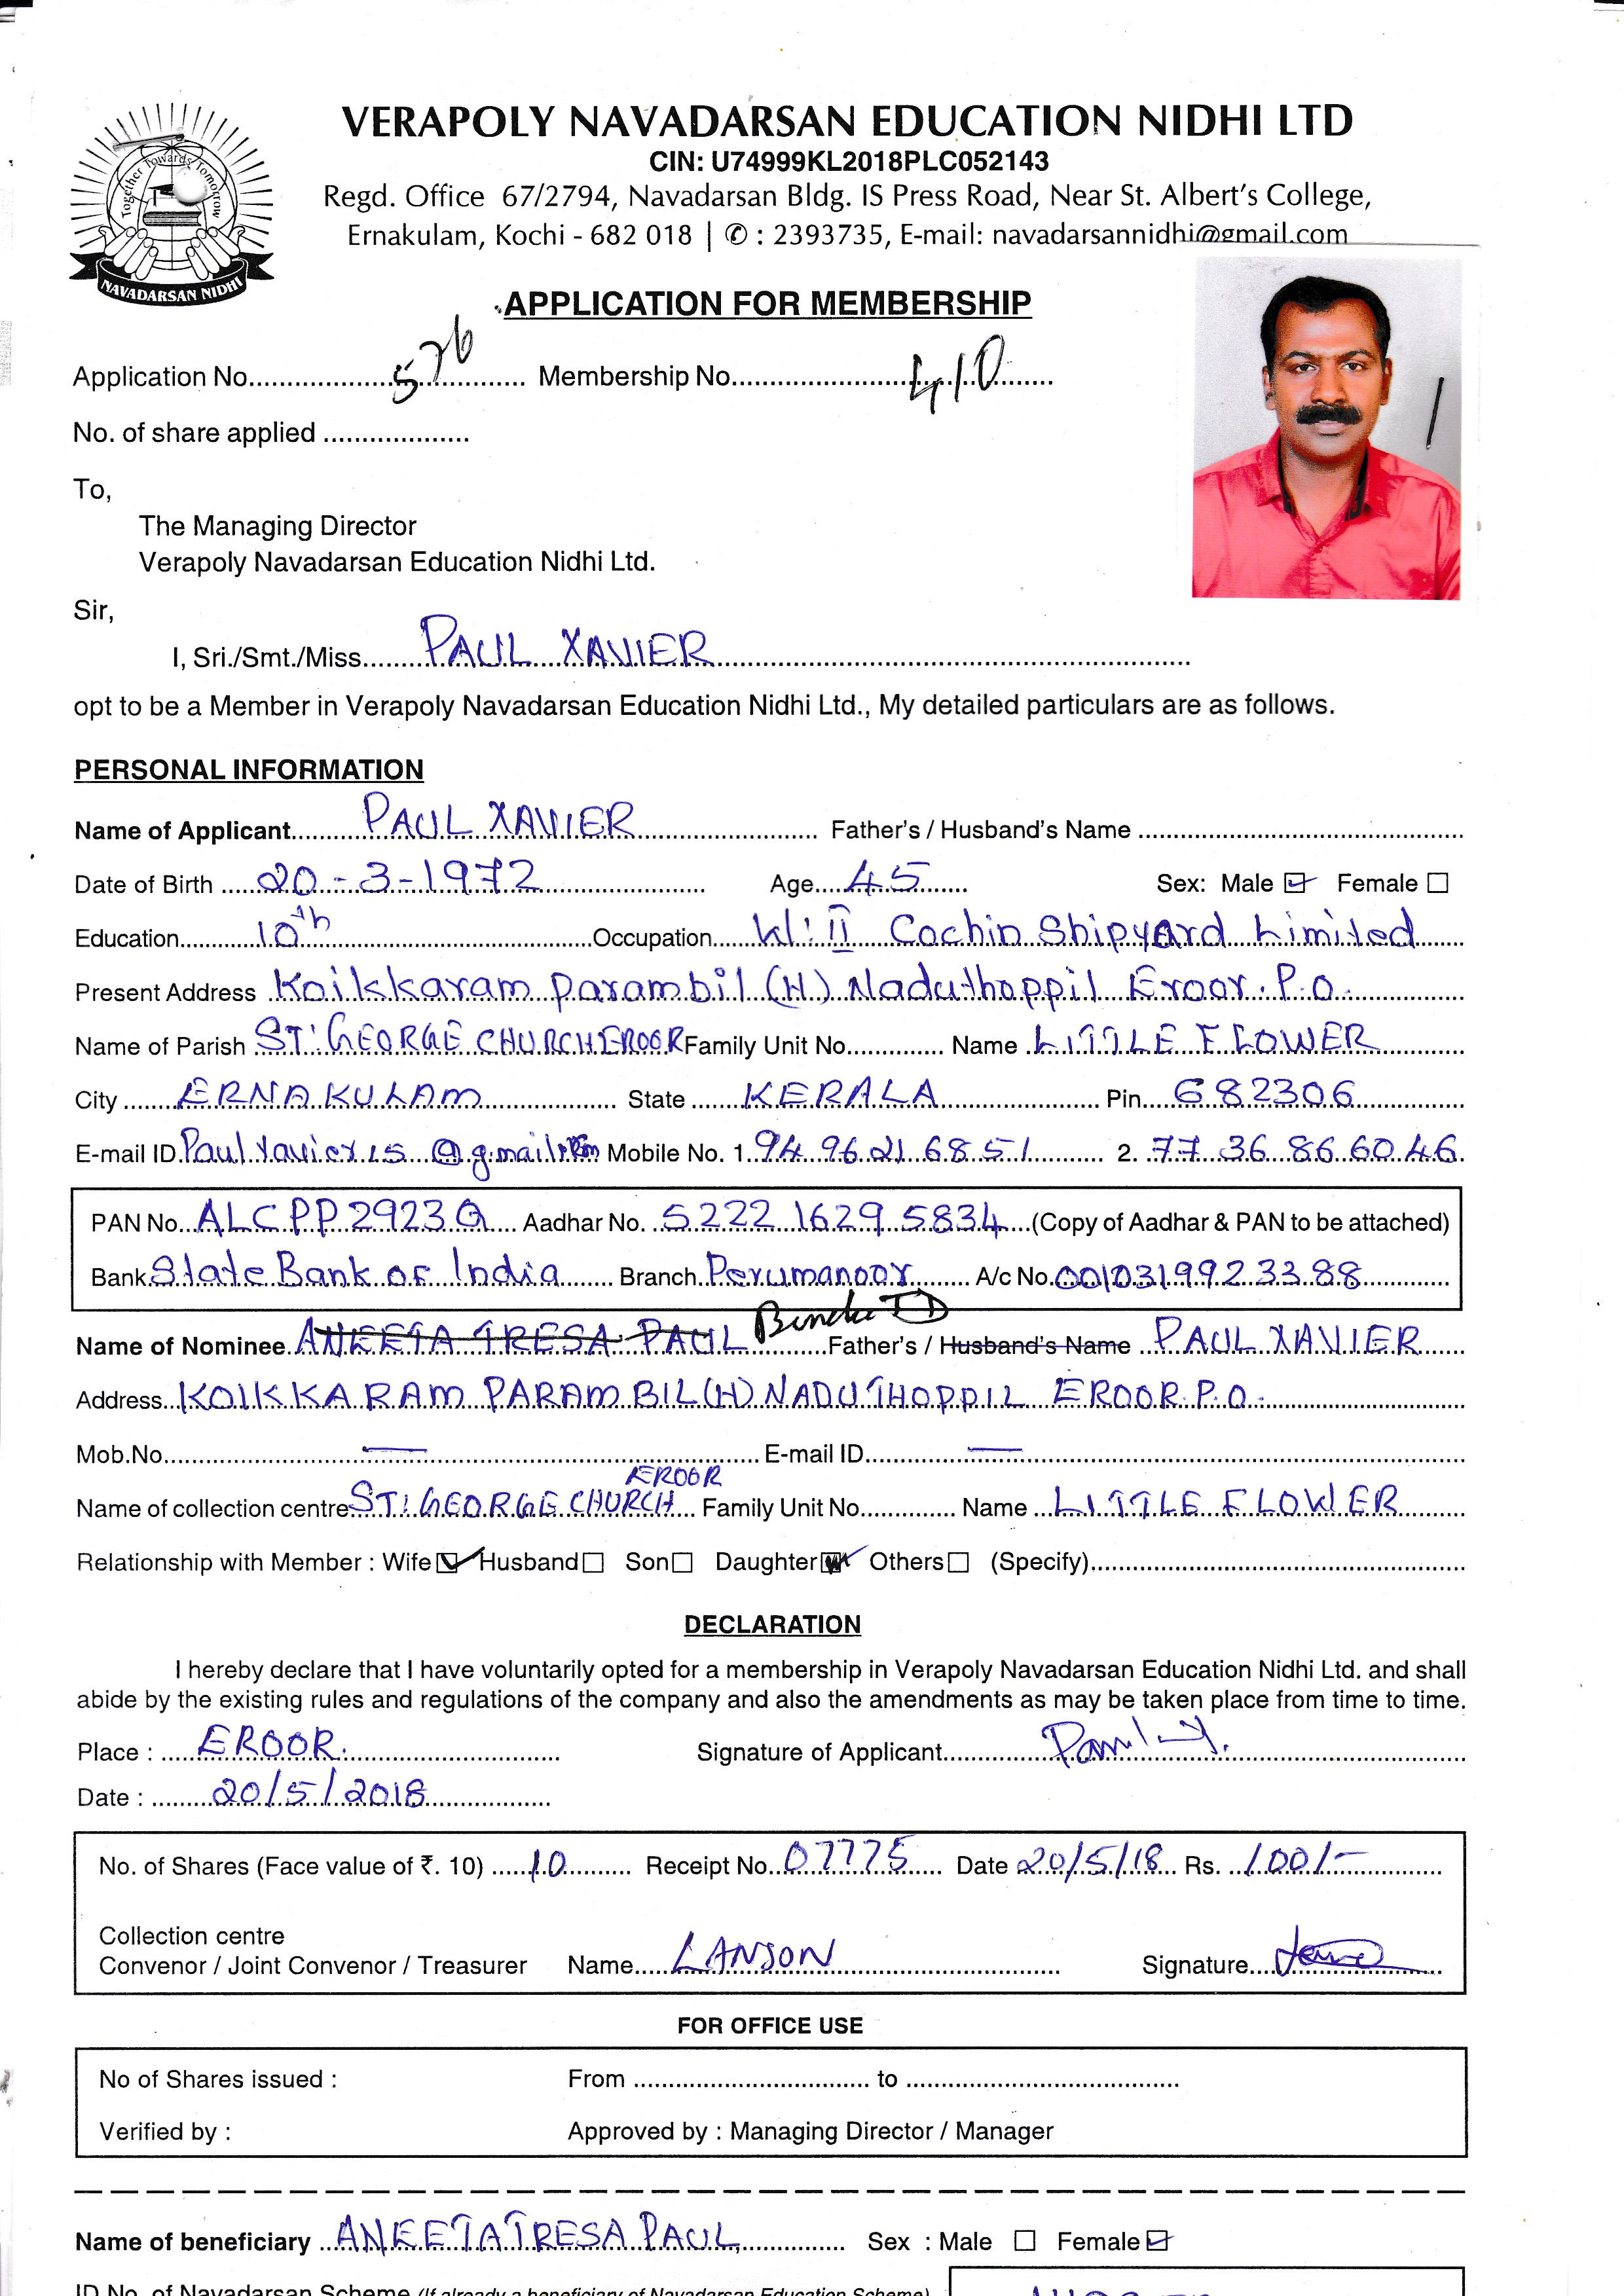 VERAPOLY NAVADARSAN EDUCATION NIDHI LTD
CIN: U74999KL2018PLC052143
Regd. Office 67/2794, Navadarsan Bldg. IS Press Road, Near St. Albert's College,
Ernakulam, Kochi - 682 018 | ✆ : 2393735, E-mail: navadarsannidhi@gmail.com
Together Towards Tomorrow
NAVADARSAN NIDHI
APPLICATION FOR MEMBERSHIP
Application No. 576 Membership No. 410
No. of share applied
To,
The Managing Director
Verapoly Navadarsan Education Nidhi Ltd.
Sir,
I, Sri./Smt./Miss. PAUL XAVIER
opt to be a Member in Verapoly Navadarsan Education Nidhi Ltd., My detailed particulars are as follows.
PERSONAL INFORMATION
Name of Applicant PAUL XAVIER Father's / Husband's Name
Date of Birth 20-3-1972 Age 45 Sex: Male ☑ Female ☐
Education 10th Occupation W:II Cochin Shipyard Limited
Present Address Koikkaram parambil (H) Naduthoppil Eroor.P.O.
Name of Parish ST:GEORGE CHURCH EROOR Family Unit No. Name LITTLE FLOWER
City ERNAKULAM State KERALA Pin 682306
E-mail ID Paulxavier15@gmail Mobile No. 1. 94 96 21 68 51 2. 77 36 86 60 46
PAN No. ALCPP2923Q Aadhar No. 5222 1629 5834 (Copy of Aadhar & PAN to be attached)
Bank State Bank of India Branch Perumanoor A/c No. 0010319923388
Name of Nominee ANEETA TRESA PAUL Bindu T D Father's / Husband's Name PAUL XAVIER
Address KOIKKARAM PARAMBIL(H) NADUTHOPPIL EROOR.P.O.
Mob.No. — E-mail ID —
Name of collection centre ST:GEORGE CHURCH EROOR Family Unit No. Name LITTLE FLOWER
Relationship with Member : Wife ☑ Husband ☐ Son ☐ Daughter ☑ Others ☐ (Specify)
DECLARATION
I hereby declare that I have voluntarily opted for a membership in Verapoly Navadarsan Education Nidhi Ltd. and shall
abide by the existing rules and regulations of the company and also the amendments as may be taken place from time to time.
Place : EROOR. Signature of Applicant
Date : 20/5/2018
No. of Shares (Face value of ₹. 10) 10 Receipt No. 07775 Date 20/5/18 Rs. 100/-
Collection centre
Convenor / Joint Convenor / Treasurer Name LANSON Signature
FOR OFFICE USE
No of Shares issued : From to
Verified by : Approved by : Managing Director / Manager
Name of beneficiary ANEETA TRESA PAUL Sex : Male ☐ Female ☑
ID No. of Navadarsan Scheme (If already a beneficiary of Navadarsan Education Scheme)